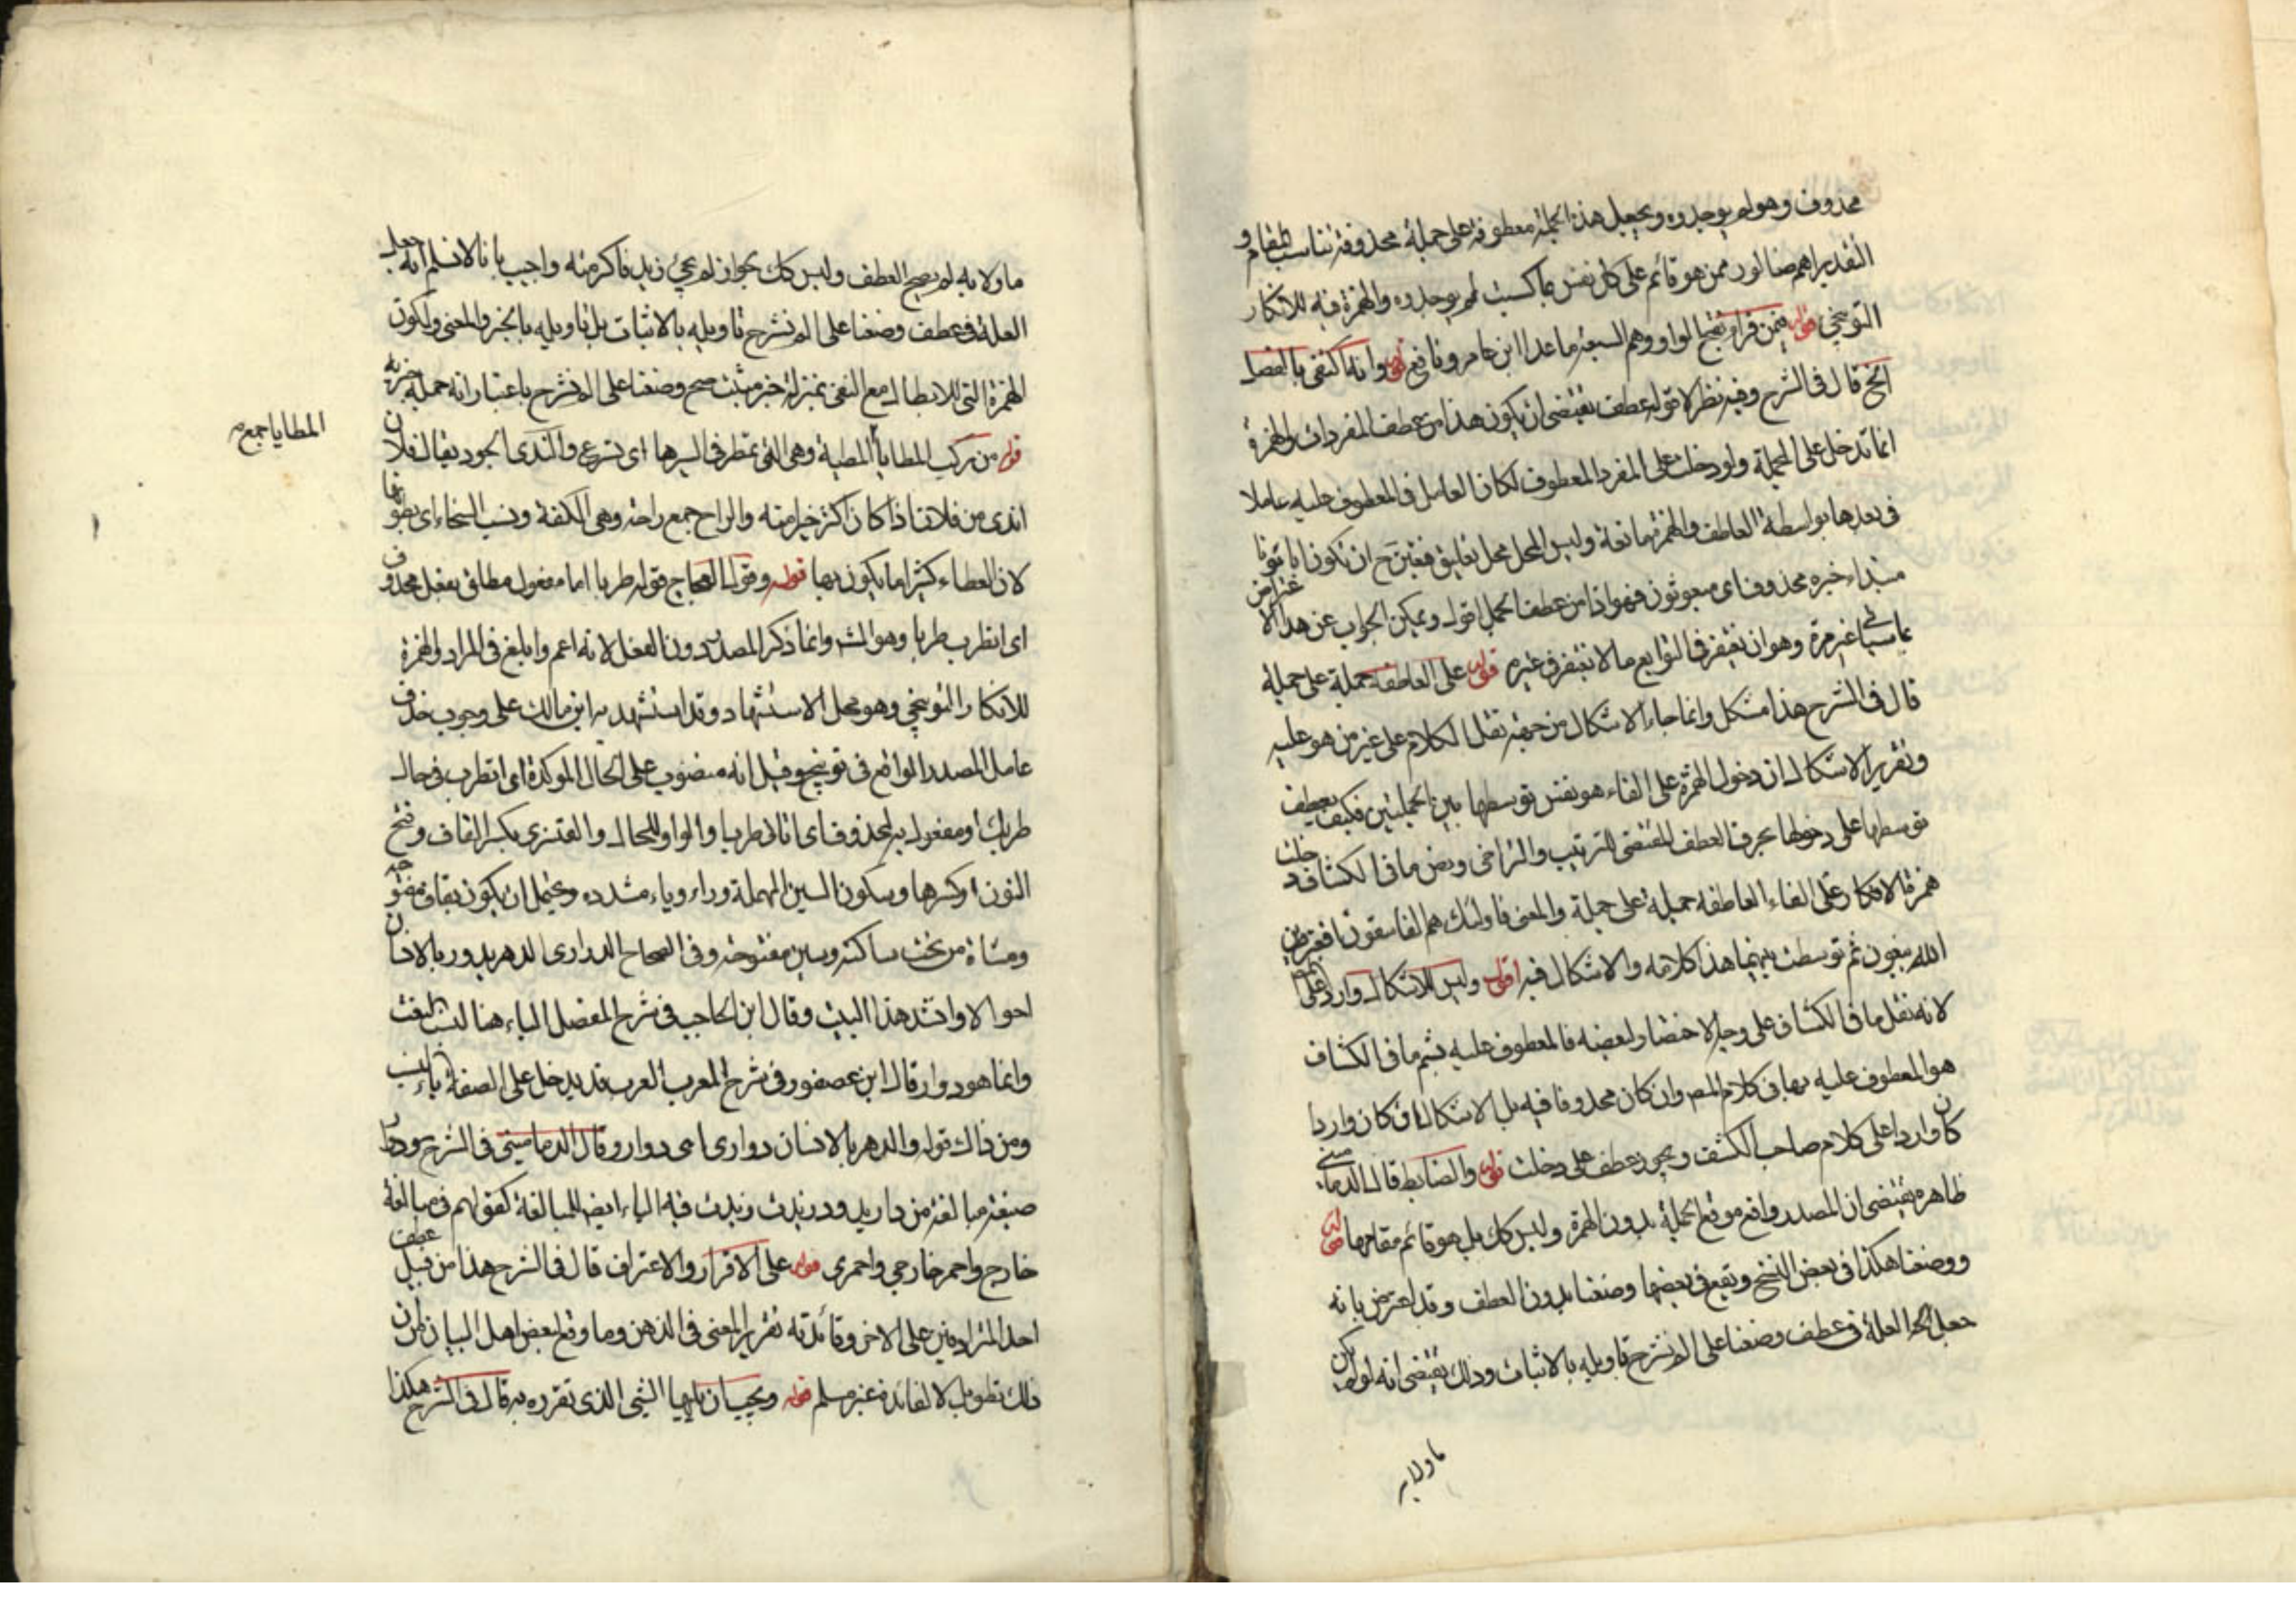 محذوف وهو لم يوحدوه ويجعل هذه الجملة معطوفة على جملة محذوفة تناسب المقام و
التقدير اهم ضالون فمن هو قائم على كل نفس بما كسبت لم يوحدوه والهمزة فيه للانكار
التوبيخى قوله فيمن قرا بفتح الواو وهم السبعة ما عدا ابن عامر ونافع قوله وانه اكتفى بالفصل
الخ قال فى الشرح وفيه نظر لان قوله عطف يقتضى ان يكون هذا من عطف المفردات والهمزة
انما تدخل على الجملة ولو دخلت على المفرد المعطوف لكان العامل فى المعطوف عليه عاملا
فى بعدها بواسطة العاطف والهمزة مانعة وليس المحل محل تعليق فتعين ح ان تكون اباؤنا
مبتداء خبره محذوف اى مبعوثون فهو اذا من عطف الجمل اقول ويمكن الجواب عن هذا الاعتراض
بما سياتى غير مرة وهو ان يغتفر فى التوابع ما لا يغتفر فى غيره قوله على العاطفة جملة على جملة
قال فى الشرح هذا مشكل وانما جاء الاشكال من جهة نقل الكلام على غير من هو عليه
وتقرير الاشكال ان دخول الهمزة على الفاء هو نفس توسطها بين الجملتين فكيف يعطف
توسطها على دخولها بحرف العطف المقتضى للترتيب والتراخى ونص ما فى الكشاف دخلت
همزة الانكار على الفاء العاطفة جملة على جملة والمعنى فاولئك هم الفاسقون افغير دين
الله يبغون ثم توسطت بينهما هذا كلامه والاشكال فيه اقول وليس الاشكال واردا على المص
لانه نقل ما فى الكشاف على وجه الاختصار لبعضه فالمعطوف عليه بثم ما فى الكشاف
هو المعطوف عليه بها فى كلام المص وان كان محذوفا فيه بل الاشكال ان كان واردا
كان واردا على كلام صاحب الكشف ويجوز عطف على دخلت قوله والضابط قال الدمامينى
ظاهره يقتضى ان المصدر واقع موقع الجملة بدون الهمزة وليس كك بل هو قائم مقامها قوله
ووضعنا هكذا فى بعض النسخ ويقع فى بعضها وضعنا بدون العطف وقد اعترض بانه
جعل العلة فى عطف وضعنا على الم نشرح تاويله بالاثبات وذلك يقتضى انه لو لم يكن
ماولا به
ماولا به لم يصح العطف وليس كك بجواز لم يجئ زيد فاكرمته واجيب بانا لا نسلم انه جعل
العلة فى عطف وضعنا على الم نشرح تاويله بالاثبات بل تاويله بالخبر والمعنى ولكون
الهمزة التى للابطال مع النفى بمنزلة خبر مثبت صح وضعنا على الم نشرح باعتبار انه جملة خبرية
قوله من ركب المطايا المطية وهى التى تمطر فى السيرها اى تسرع والندى الجود يقال فلان
اندى من فلان اذا كان اكثر خيرا منه والراح جمع راحة وهى الكفة ونسب السخاء اى بطونها
لان العطاء كثيرا ما يكون بها قوله وقول العجاج قوله طربا اما مفعول مطلق بفعل محذوف
اى اتطرب طربا وهو المش وانما ذكر المصدر دون الفعل لانه اعم وابلغ فى المراد والهمزة
للانكار التوبيخى وهو محل الاستشهاد وقد استشهد به ابن مالك على وجوب حذف
عامل المصدر الواقع فى توبيخ وقيل انه منصوب على الحال الموكدة اى اتطرب فى حال
طربك او مفعول به لمحذوف اى اتاتى طربا والواو للحال والقنسرى بكسر القاف وفتح
النون او كسرها وسكون السين المهملة وراء وياء مشدده ويحتمل ان يكون بقاف مفتوحه
ومثناة من تحت ساكنة وسين مفتوحة وفى الصحاح الدوارى الدهر يدور بالانسان
احوالا وانشد هذا البيت وقال ابن الحاجب فى شرح المفصل الياء هنا ليست للنسبة
وانما هو دوار قال ابن عصفور فى شرح المعرب العرب قد يدخل على الصفة ياء النسب
ومن ذلك قوله والدهر بالانسان دوارى اى دوار وقال الدمامينى فى الشرح دوار
صيغة مبالغة من دار يدور زيدت فيه الياء ايض للمبالغة كقولهم فى مبالغة
خارج واحمر خارجى واحمرى قوله على الاقرار والاعتراف قال فى الشرح هذا من قبيل عطف
احد المترادفين على الاخر وفائدته تقرير المعنى فى الذهن وما وقع لبعض اهل البيان من ان
ذلك تطويل لا لفائدة غير مسلم قوله ويجب ان يليها الشئ الذى تقرره به قال فى الشرح هكذا
المطايا جمع م